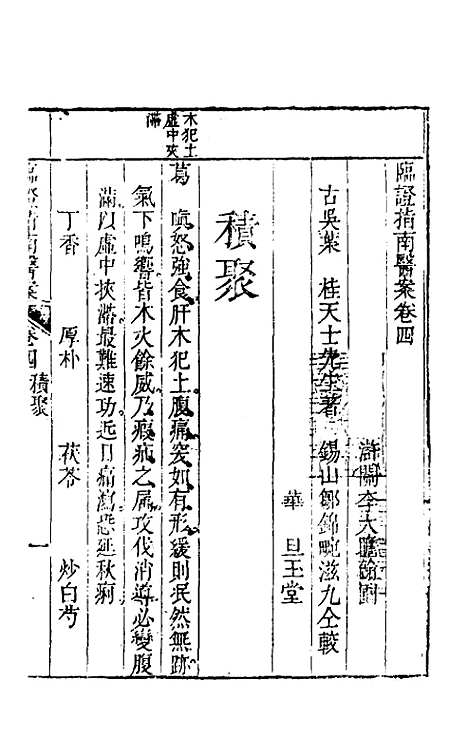 臨證指南醫案卷四
滸關李大瞻翰圃
古吳葉　桂天士先生著　錫山鄒錦畹滋九仝較
華　旦玉堂
積聚
木犯土
虛中夾
滯
葛　嗔怒強食肝木犯土腹痛突如有形緩則泯然無跡
氣下鳴響皆木火餘威乃瘕疝之屬攻伐消導必變腹
滿以虛中挾滯最難速功近日痛瀉恐延秋痢
丁香　厚朴　茯苓　炒白芍
臨證指南醫案　卷四　積聚　一